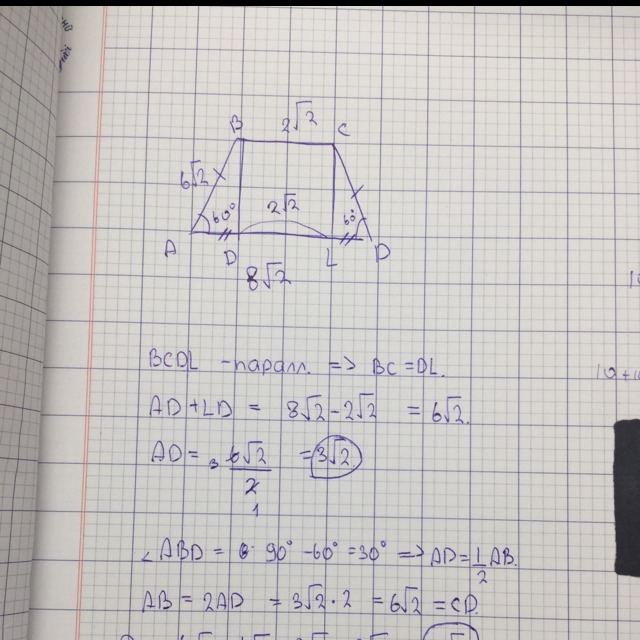 B 2√2 C
6√2
60° 2√2 60°
A D L D
8√2
BCDL - паралл. => BC = DL.
AD + LD = 8√2 - 2√2 = 6√2.
AD = 3 6√2/2 1 = 3√2
∠ABD = 90° - 60° = 30° => AD = 1/2 AB.
AB = 2AD = 3√2 · 2 = 6√2 = CD.